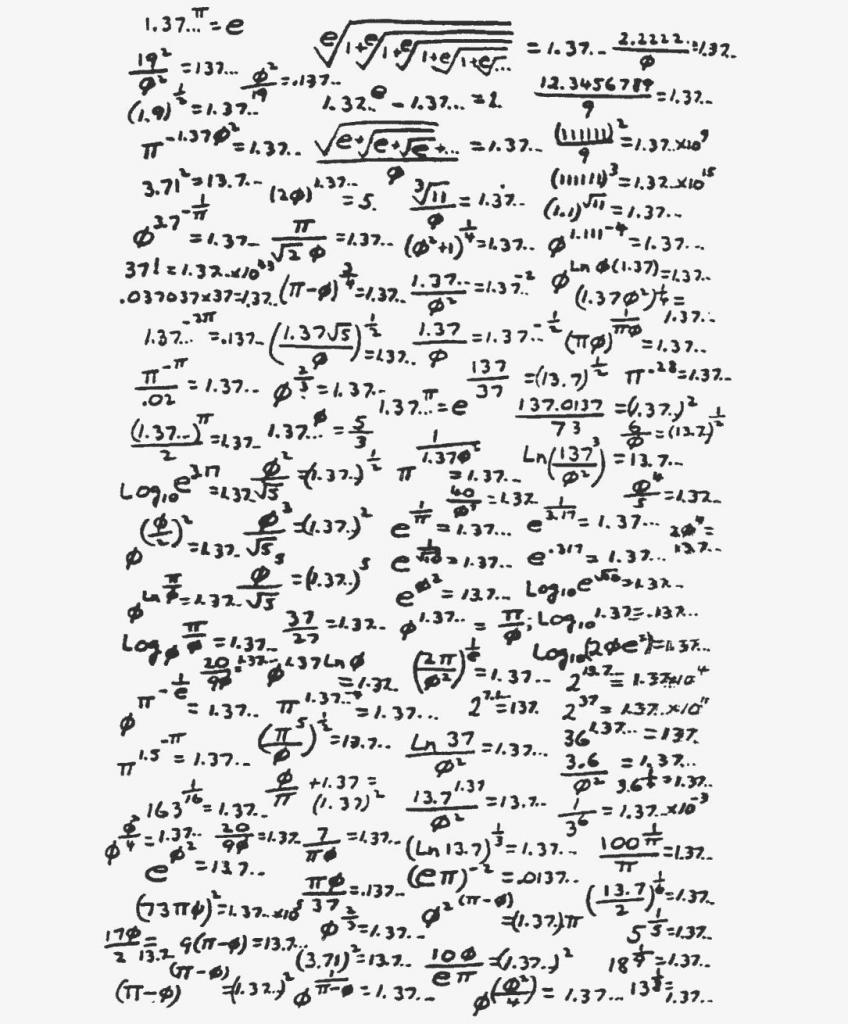 1.37...^π = e
e√(1+e√(1+e√(1+e√(1+e√... = 1.37.. 2.2222../φ = 1.37..
19²/φ² = 137... φ²/19 = .137...
(1.9)^½ = 1.37.. 1.37..^e - 1.37... = 1 12.3456789/9 = 1.37..
π^-1.37φ² = 1.37.. √(e+√(e+√e+.../φ = 1.37... (111111)²/9 = 1.37..x10⁹
3.71² = 13.7... (2φ)^1.37.. = 5. ³√11/φ = 1.37.. (11111)³ = 1.37..x10¹⁵
(1.1)^√11 = 1.37...
φ^3.7^-1/π = 1.37.. π/(√2 φ) = 1.37.. (φ²+1)^¼ = 1.37.. φ^1.111^-4 = 1.37..
37! = 1.37..x10⁴³ φ^Ln φ(1.37) = 1.37..
.037037x37=1.37.. (π-φ)^¾ = 1.37.. 1.37../φ² = 1.37..^-2 (1.37φ²)^¼ = 1.37..
1.37..^-2π = .137.. (1.37√5/φ)^½ = 1.37.. 1.37/φ = 1.37..^-½ (πφ)^1/πφ = 1.37..
π^-π/.02 = 1.37.. φ^⅔ = 1.37.. 137/37 = (13.7)^½ π^.28 = 1.37..
1.37..^π = e 137.0137/73 = (1.37..)²
(1.37..)^π/2 = 1.37.. 1.37..^φ = 5/3 6/φ = (13.7)^½
π^1/1.37φ² = 1.37... Ln(137³/φ²) = 13.7...
Log₁₀ e^3.17 = 1.37 φ²/√5 = (1.37..)^½ 40/φ⁷ = 1.37 φ⁴/5 = 1.37..
φ^(φ/2)² = 1.37.. φ³/√5 = (1.37..)² e^1/π = 1.37... e^1/3.17 = 1.37... 2φ⁴ = 13.7...
e^1/√10 = 1.37.. e^.317 = 1.37...
φ^Ln π/φ = 1.37.. φ⁵/√5 = (1.37..)⁵ e^φ² = 13.7... Log₁₀ e^√10 = 1.37..
Log_φ π/φ = 1.37.. 37/27 = 1.37.. φ^1.37.. = π/φ; Log₁₀ 1.37 = .137...
20/9φ = 1.37.. φ^1.37 Ln φ = 1.37 (2π/φ²)^1/e = 1.37... Log₁₀(2φe²) = 1.37...
2^13.7.. = 1.37x10⁴
φ^π^-1/e = 1.37.. = 1.37... 2^7.1 = 137. 2³⁷ = 1.37..x10¹¹
36^1.37... = 137.
π^1.5^-π = 1.37.. (π⁵/φ)^½ = 13.7.. Ln 37/φ² = 1.37... 3.6/φ² = 1.37...
163^1/16 = 1.37.. φ/π + 1.37 = (1.37)² 13.7^1.37/φ² = 13.7.. 1/3⁶ = 1.37..x10⁻³
20/9φ = 1.37 7/πφ = 1.37.. (Ln 13.7)^⅓ = 1.37.. 100^1/π/π = 1.37..
e^φ² = 13.7.. πφ/37 = .137.. (eπ)^-2 = .0137..
(73πφ)² = 1.37..x10⁵ φ^⅔ = 1.37.. φ²^(π-φ) = (1.37..)π (13.7/2)^1/6 = 1.37..
5^1/5 = 1.37..
17φ/2 = 13.7 9(π-φ) = 13.7.. (3.71)² = 13.7.. 10φ/eπ = (1.37..)² 18^1/9 = 1.37..
(π-φ)^(π-φ) = (1.37..)² φ^1/π-φ = 1.37... φ^(φ²/4) = 1.37... 13^⅛ = 1.37..